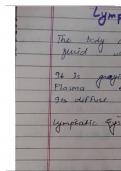 Lymp
The body
fluid
It is grayi
Plasma
Its diffuse
Lymphatic Sys